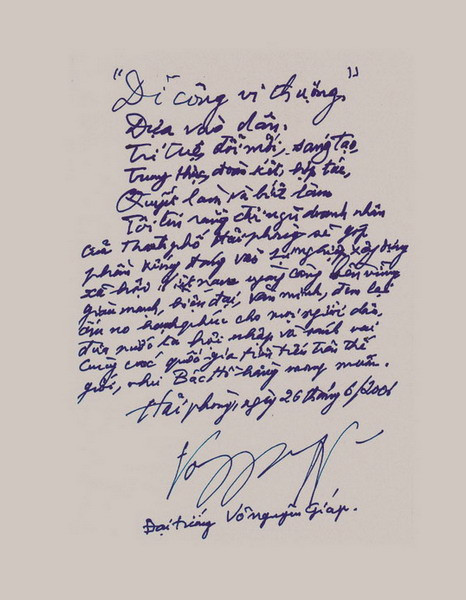 "Dĩ công vi thượng"
Dựa vào dân.
Trí tuệ, đổi mới, sáng tạo,
Trung thực, đoàn kết, hợp tác,
Quyết làm và biết làm
Tôi tin rằng đội ngũ doanh nhân
của Thành phố Hải Phòng sẽ góp
phần xứng đáng vào sự nghiệp xây dựng
xã hội Việt Nam ngày càng bền vững
giàu mạnh, hiện đại, văn minh, đem lại
ấm no hạnh phúc cho mọi người dân,
đưa nước ta hội nhập và sánh vai
cùng các quốc gia tiên tiến trên thế
giới, như Bác Hồ hằng mong muốn.
Hải phòng, ngày 26 tháng 6/2006
Đại tướng Võ Nguyên Giáp.